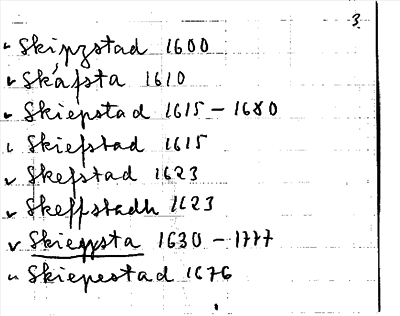 3
Skipzstad 1600
Skáfsta 1610
Skiepstad 1615 - 1680
Skiefstad 1615
Skefstad 1623
Skeffstadh 1623
Skieppsta 1630 - 1777
Skiepestad 1676